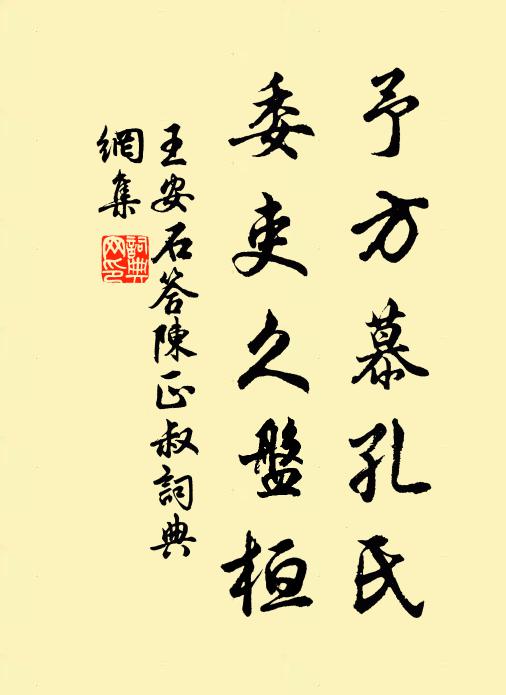 予方慕孔氏
委吏久盤桓
王安石答陳正叔詞典
網集
詞典
网印